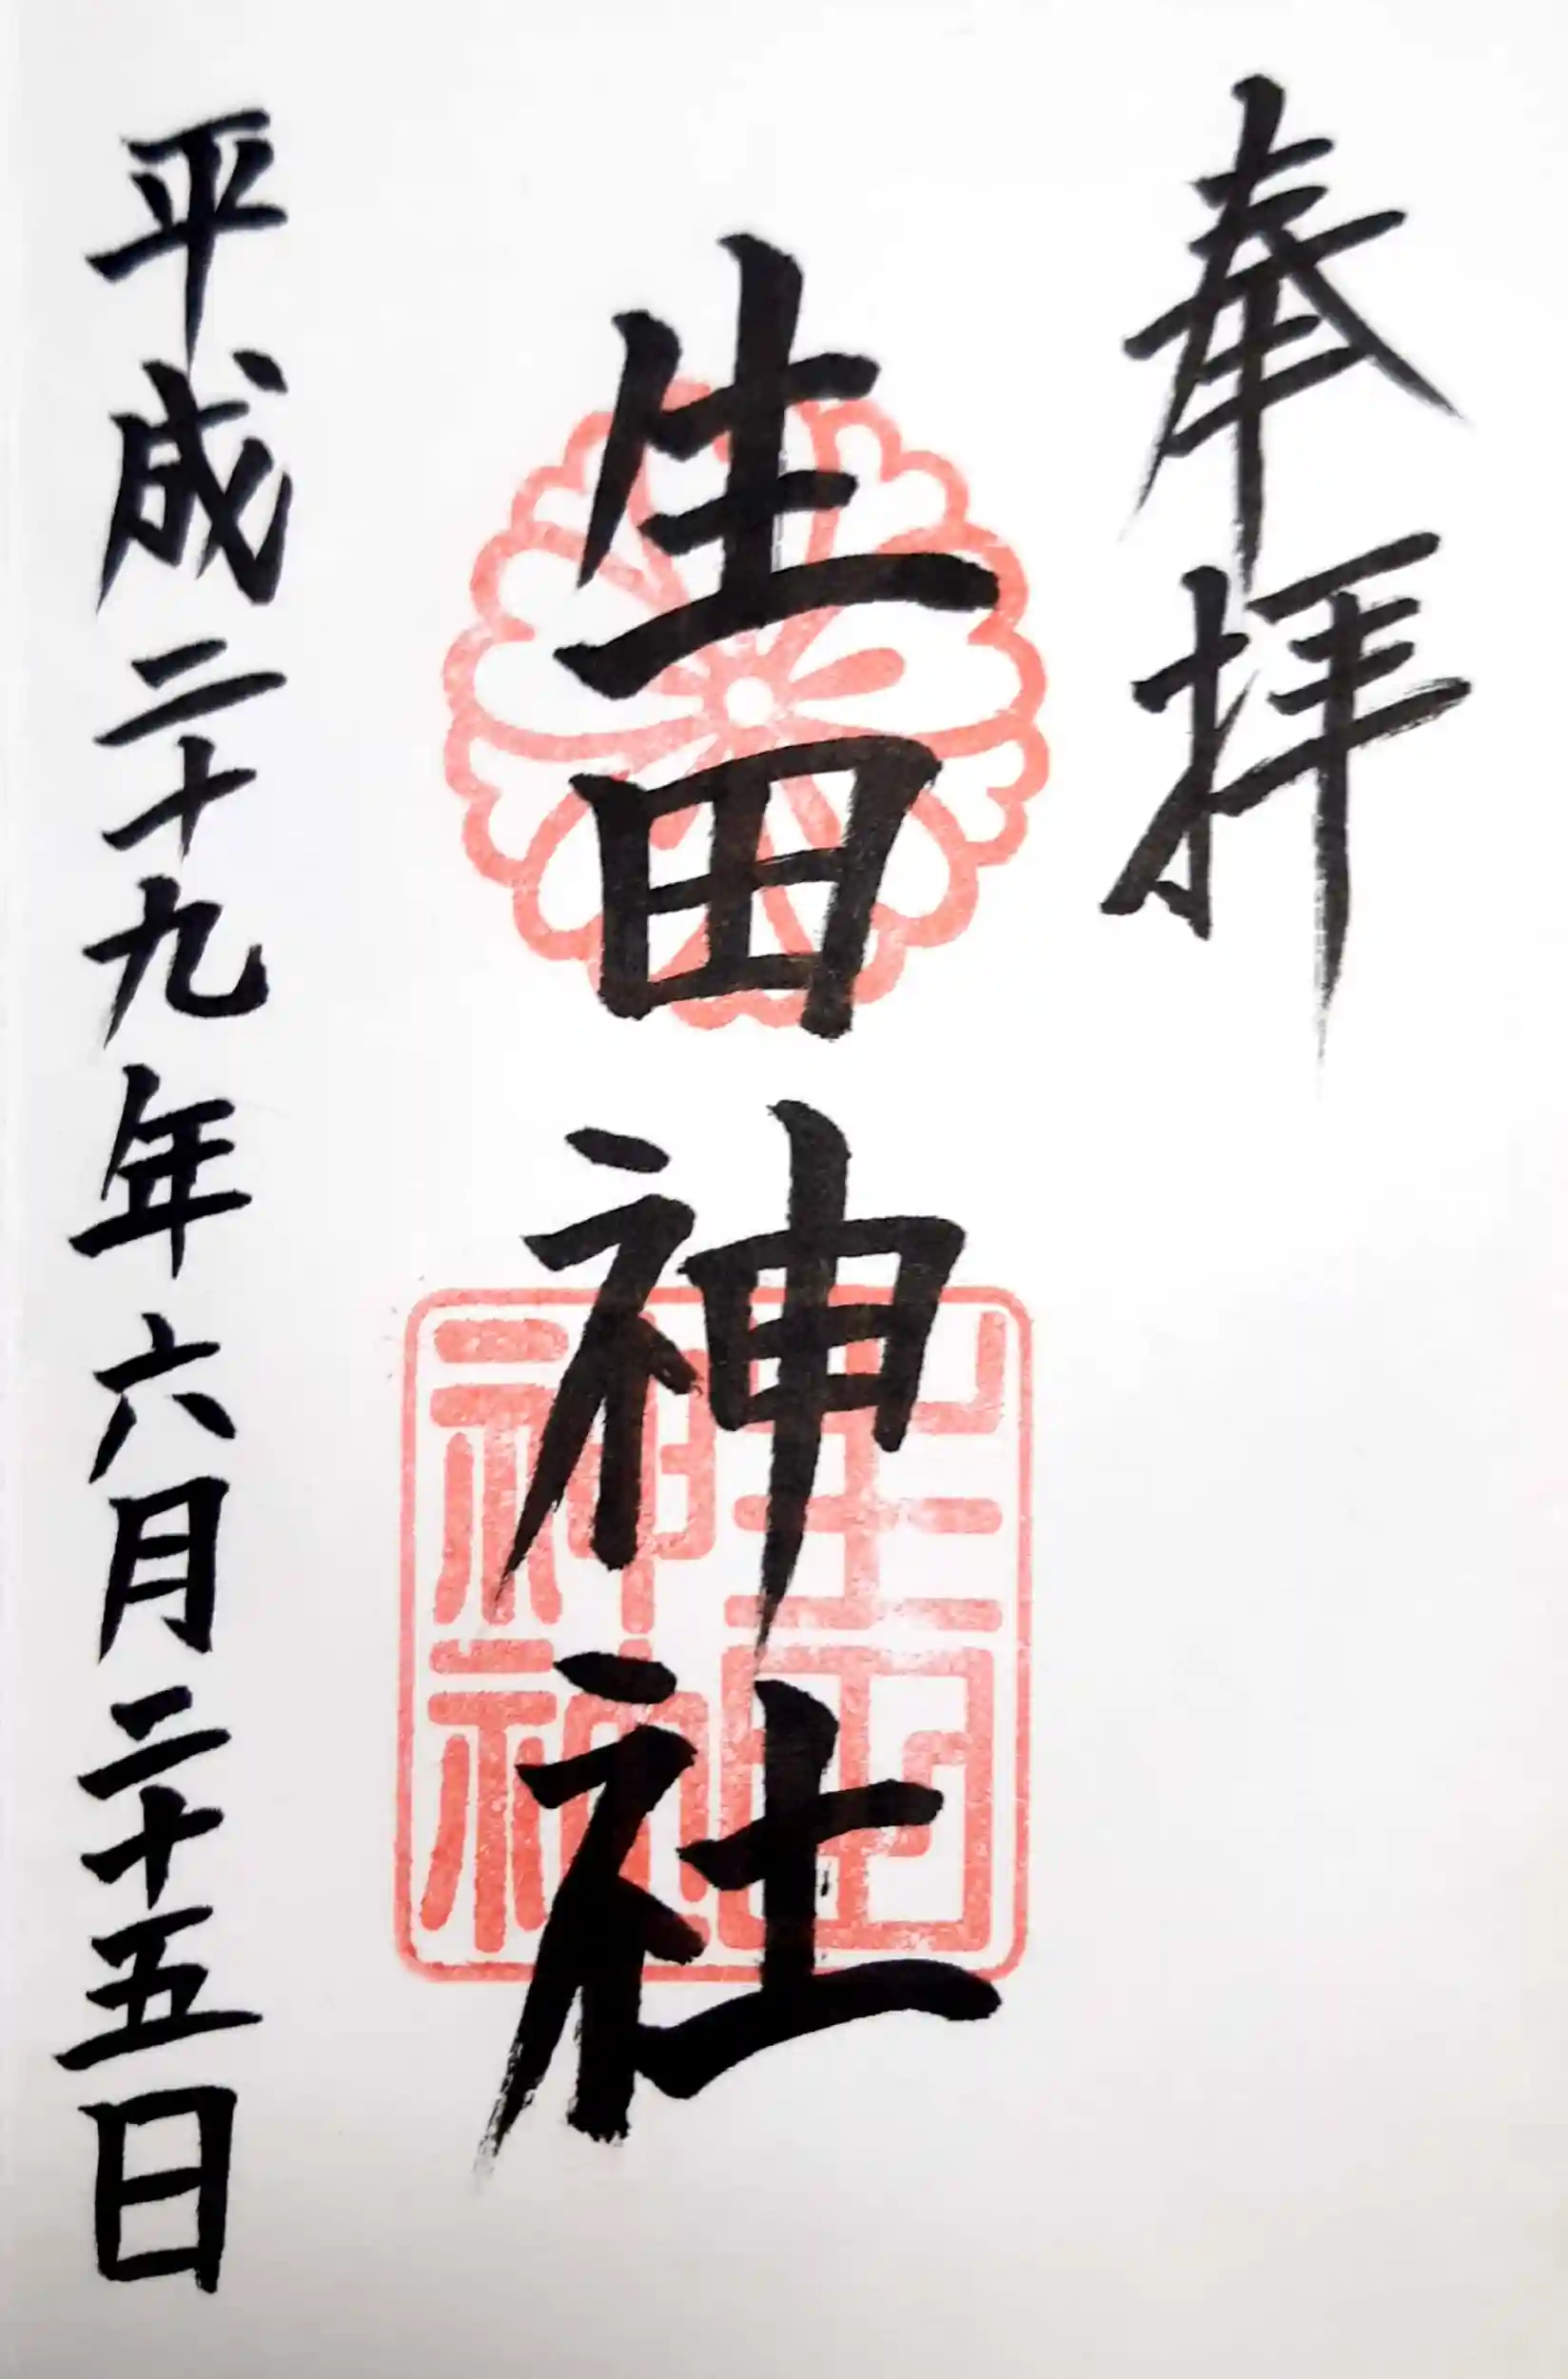 奉拝
生田神社
生田神社
平成二十九年六月二十五日